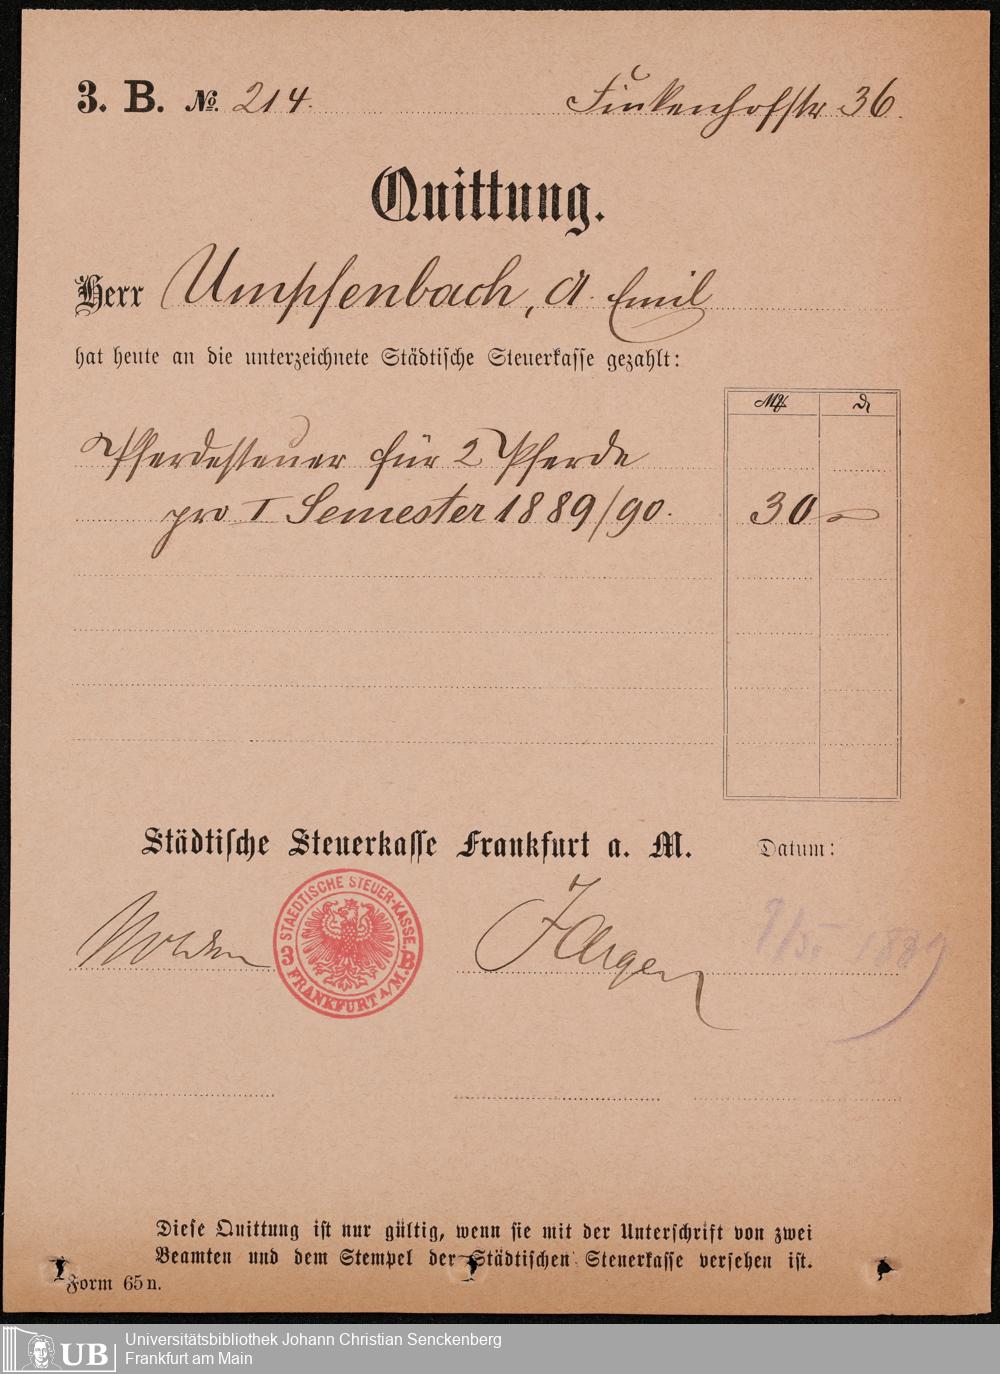 3. B. No. 214. Finkenhofstr 36.
Quittung.
Herr Umpfenbach, A. Emil
hat heute an die unterzeichnete Städtische Steuerkasse gezahlt:
Mk. ₰
Pferdesteuer für 2 Pferde
pro I Semester 1889/90. 30 –
Städtische Steuerkasse Frankfurt a. M. Datum:
STAEDTISCHE STEUER-KASSE.
3 B
FRANKFURT A/M.
1889
Diese Quittung ist nur gültig, wenn sie mit der Unterschrift von zwei
Beamten und dem Stempel der Städtischen Steuerkasse versehen ist.
Form 65 n.
UB
Universitätsbibliothek Johann Christian Senckenberg
Frankfurt am Main